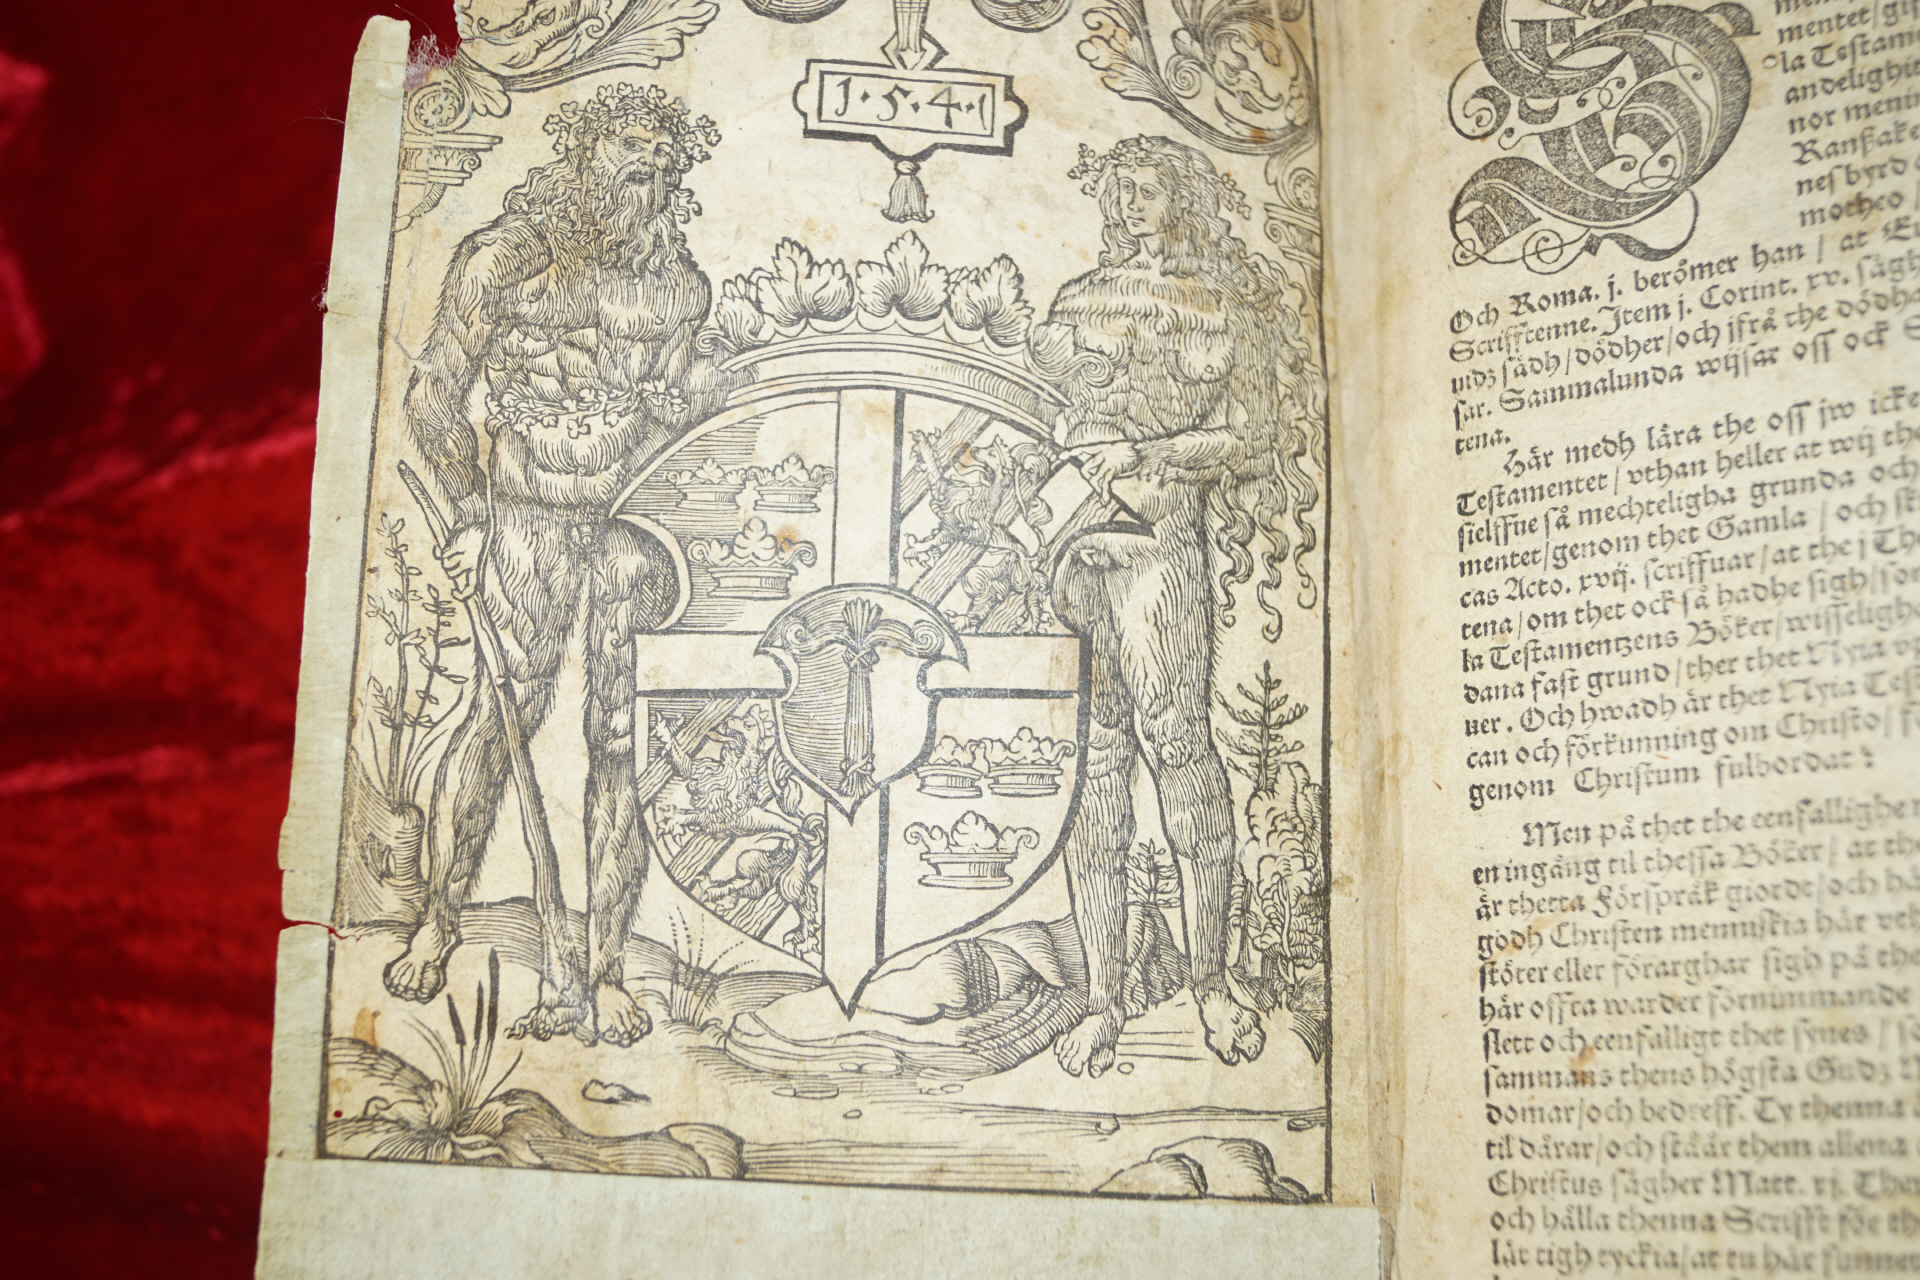 1·5·4·1
mentet/
la Testam
andelighit
nor menin
Ranßake
nes byrd
motheo /
Och Roma. j. berömer han / at
Scrifftenne. Jtem j. Corint. xv. sägh
vidz sädh/dödher/och jfrå the dödha
sar. Sammalunda wijsar oss ock
tena.
Här medh lära the oss jw icke
Testamentet/vthan heller at wij the
sielffue så mechteligha grunda och
mentet/genom thet Gamla / och
cas Acto. xvij. scriffuar/at the j The
tena/om thet ock så hadhe sigh/som
la Testamentzens Böker/wisseligh
dana fast grund/ther thet Nyia vp
uer. Och hwadh är thet Nyia Test
can och förkunning om Christo/
genom Christum fulbordat:
Men på thet the eenfallighe
en ingång til thessa Böker / at the
är thetta Förspråk giordt/och
godh Christen menniskia här
stöter eller förarghar sigh på the
här offta warder förnummande
slett och eenfalligt thet synes /
sammans thens högsta Gudz
domar/och bedreff. Ty thenna
til dårar/och står them allena
Christus sägher Matt. xj. Then
och hålla thenna Scrifft för
lät tigh tyckia/at tu här finner